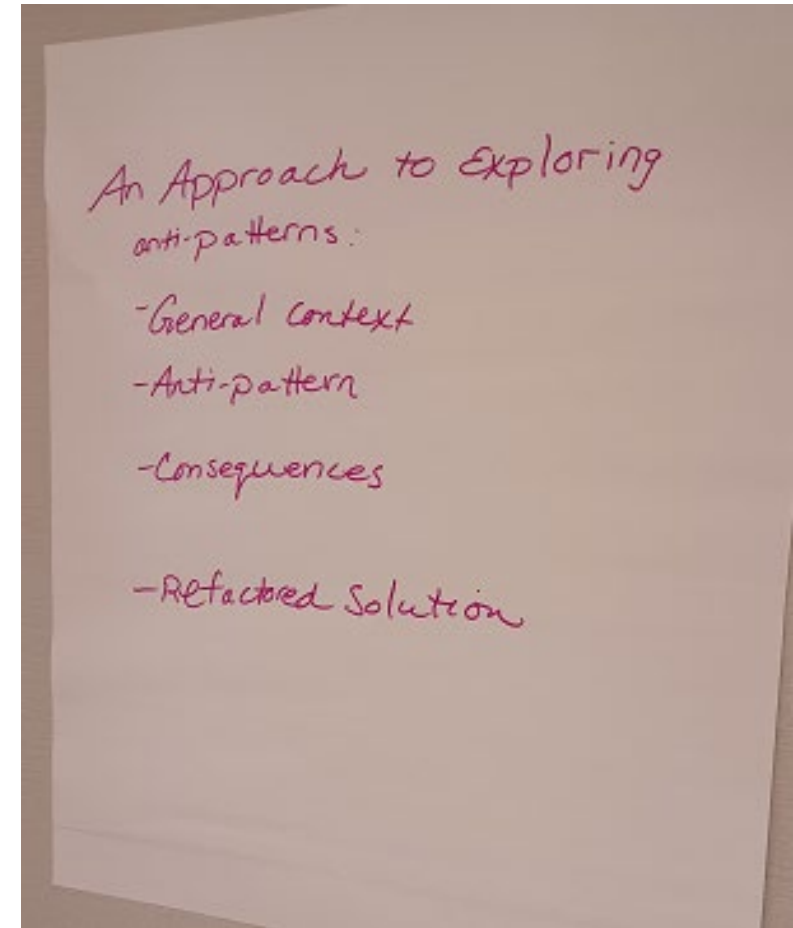 An Approach to Exploring
anti-patterns:
-General Context
-Anti-pattern
-Consequences
-Refactored Solution